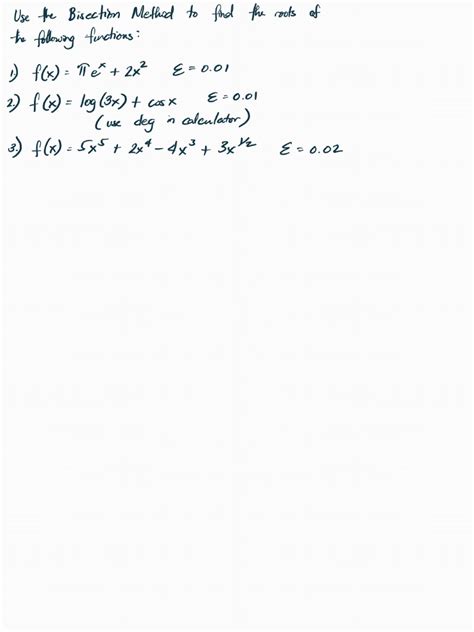 Use the Bisection Method to find the roots of
the following functions:
1) f(x) = πe^x + 2x^2   ε = 0.01
2) f(x) = log(3x) + cos x   ε = 0.01
(use deg in calculator)
3) f(x) = 5x^5 + 2x^4 - 4x^3 + 3x^1/2   ε = 0.02